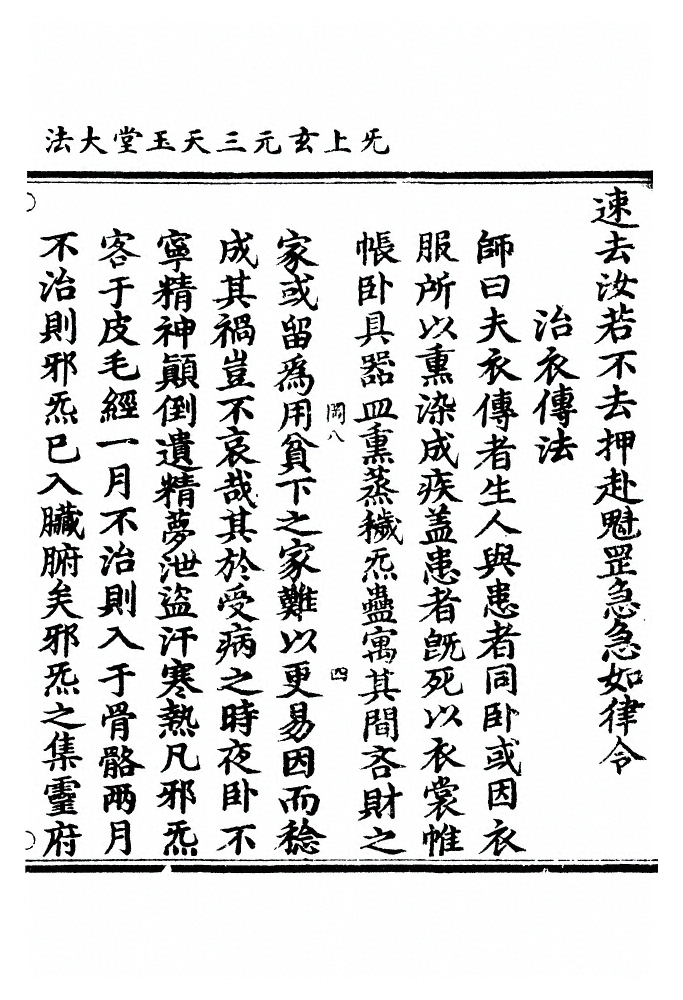 法大堂玉天三元玄上旡
速去汝若不去押赴魁罡急急如律令
治衣傳法
師曰夫衣傳者生人與患者同卧或因衣
服所以熏染成疾蓋患者旣死以衣裳帷
帳卧具器皿熏蒸穢炁蠱寓其間吝財之
岡八
四
家或留爲用貧下之家難以更易因而稔
成其禍豈不哀哉其於受病之時夜卧不
寧精神顚倒遺精夢泄盜汗寒熱凡邪炁
客于皮毛經一月不治則入于骨骼兩月
不治則邪炁已入臟腑矣邪炁之集靈府